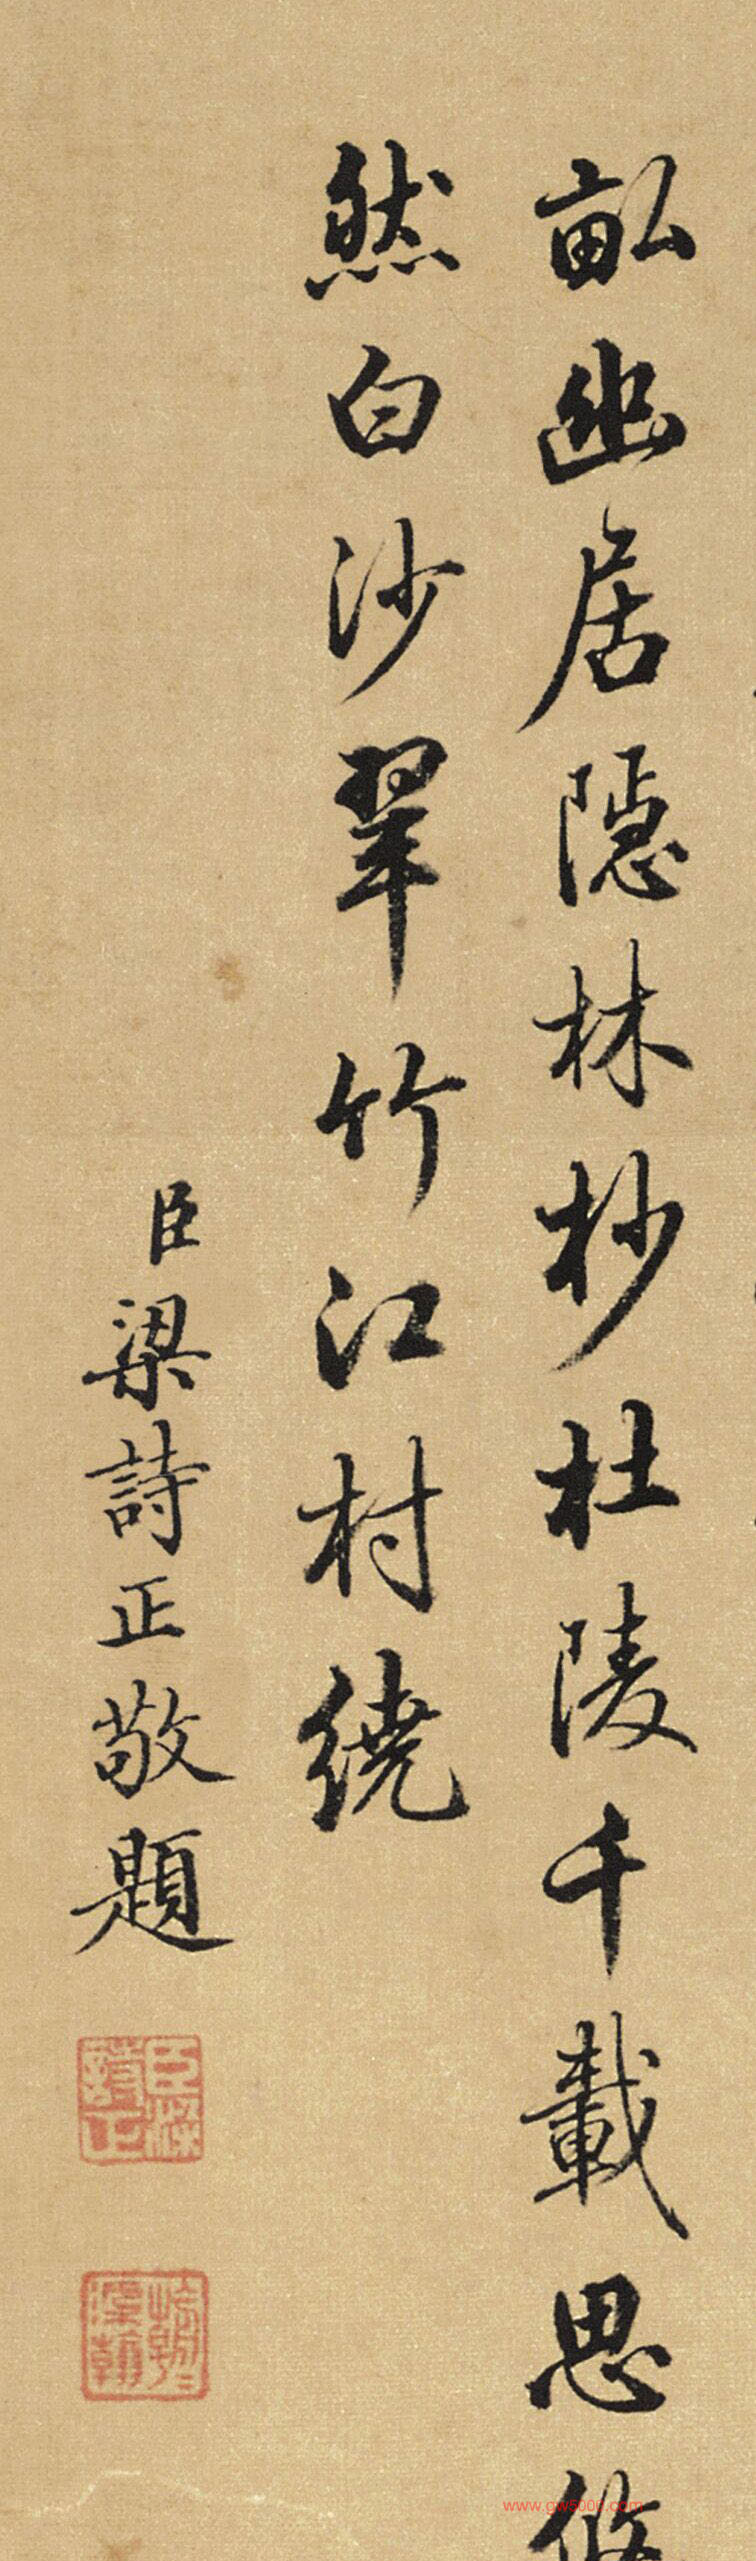 畝幽居隱林杪杜陵千載思悠
然白沙翠竹江村繞
臣梁詩正敬題
臣梁詩正
朝朝染翰
www.gw5000.com